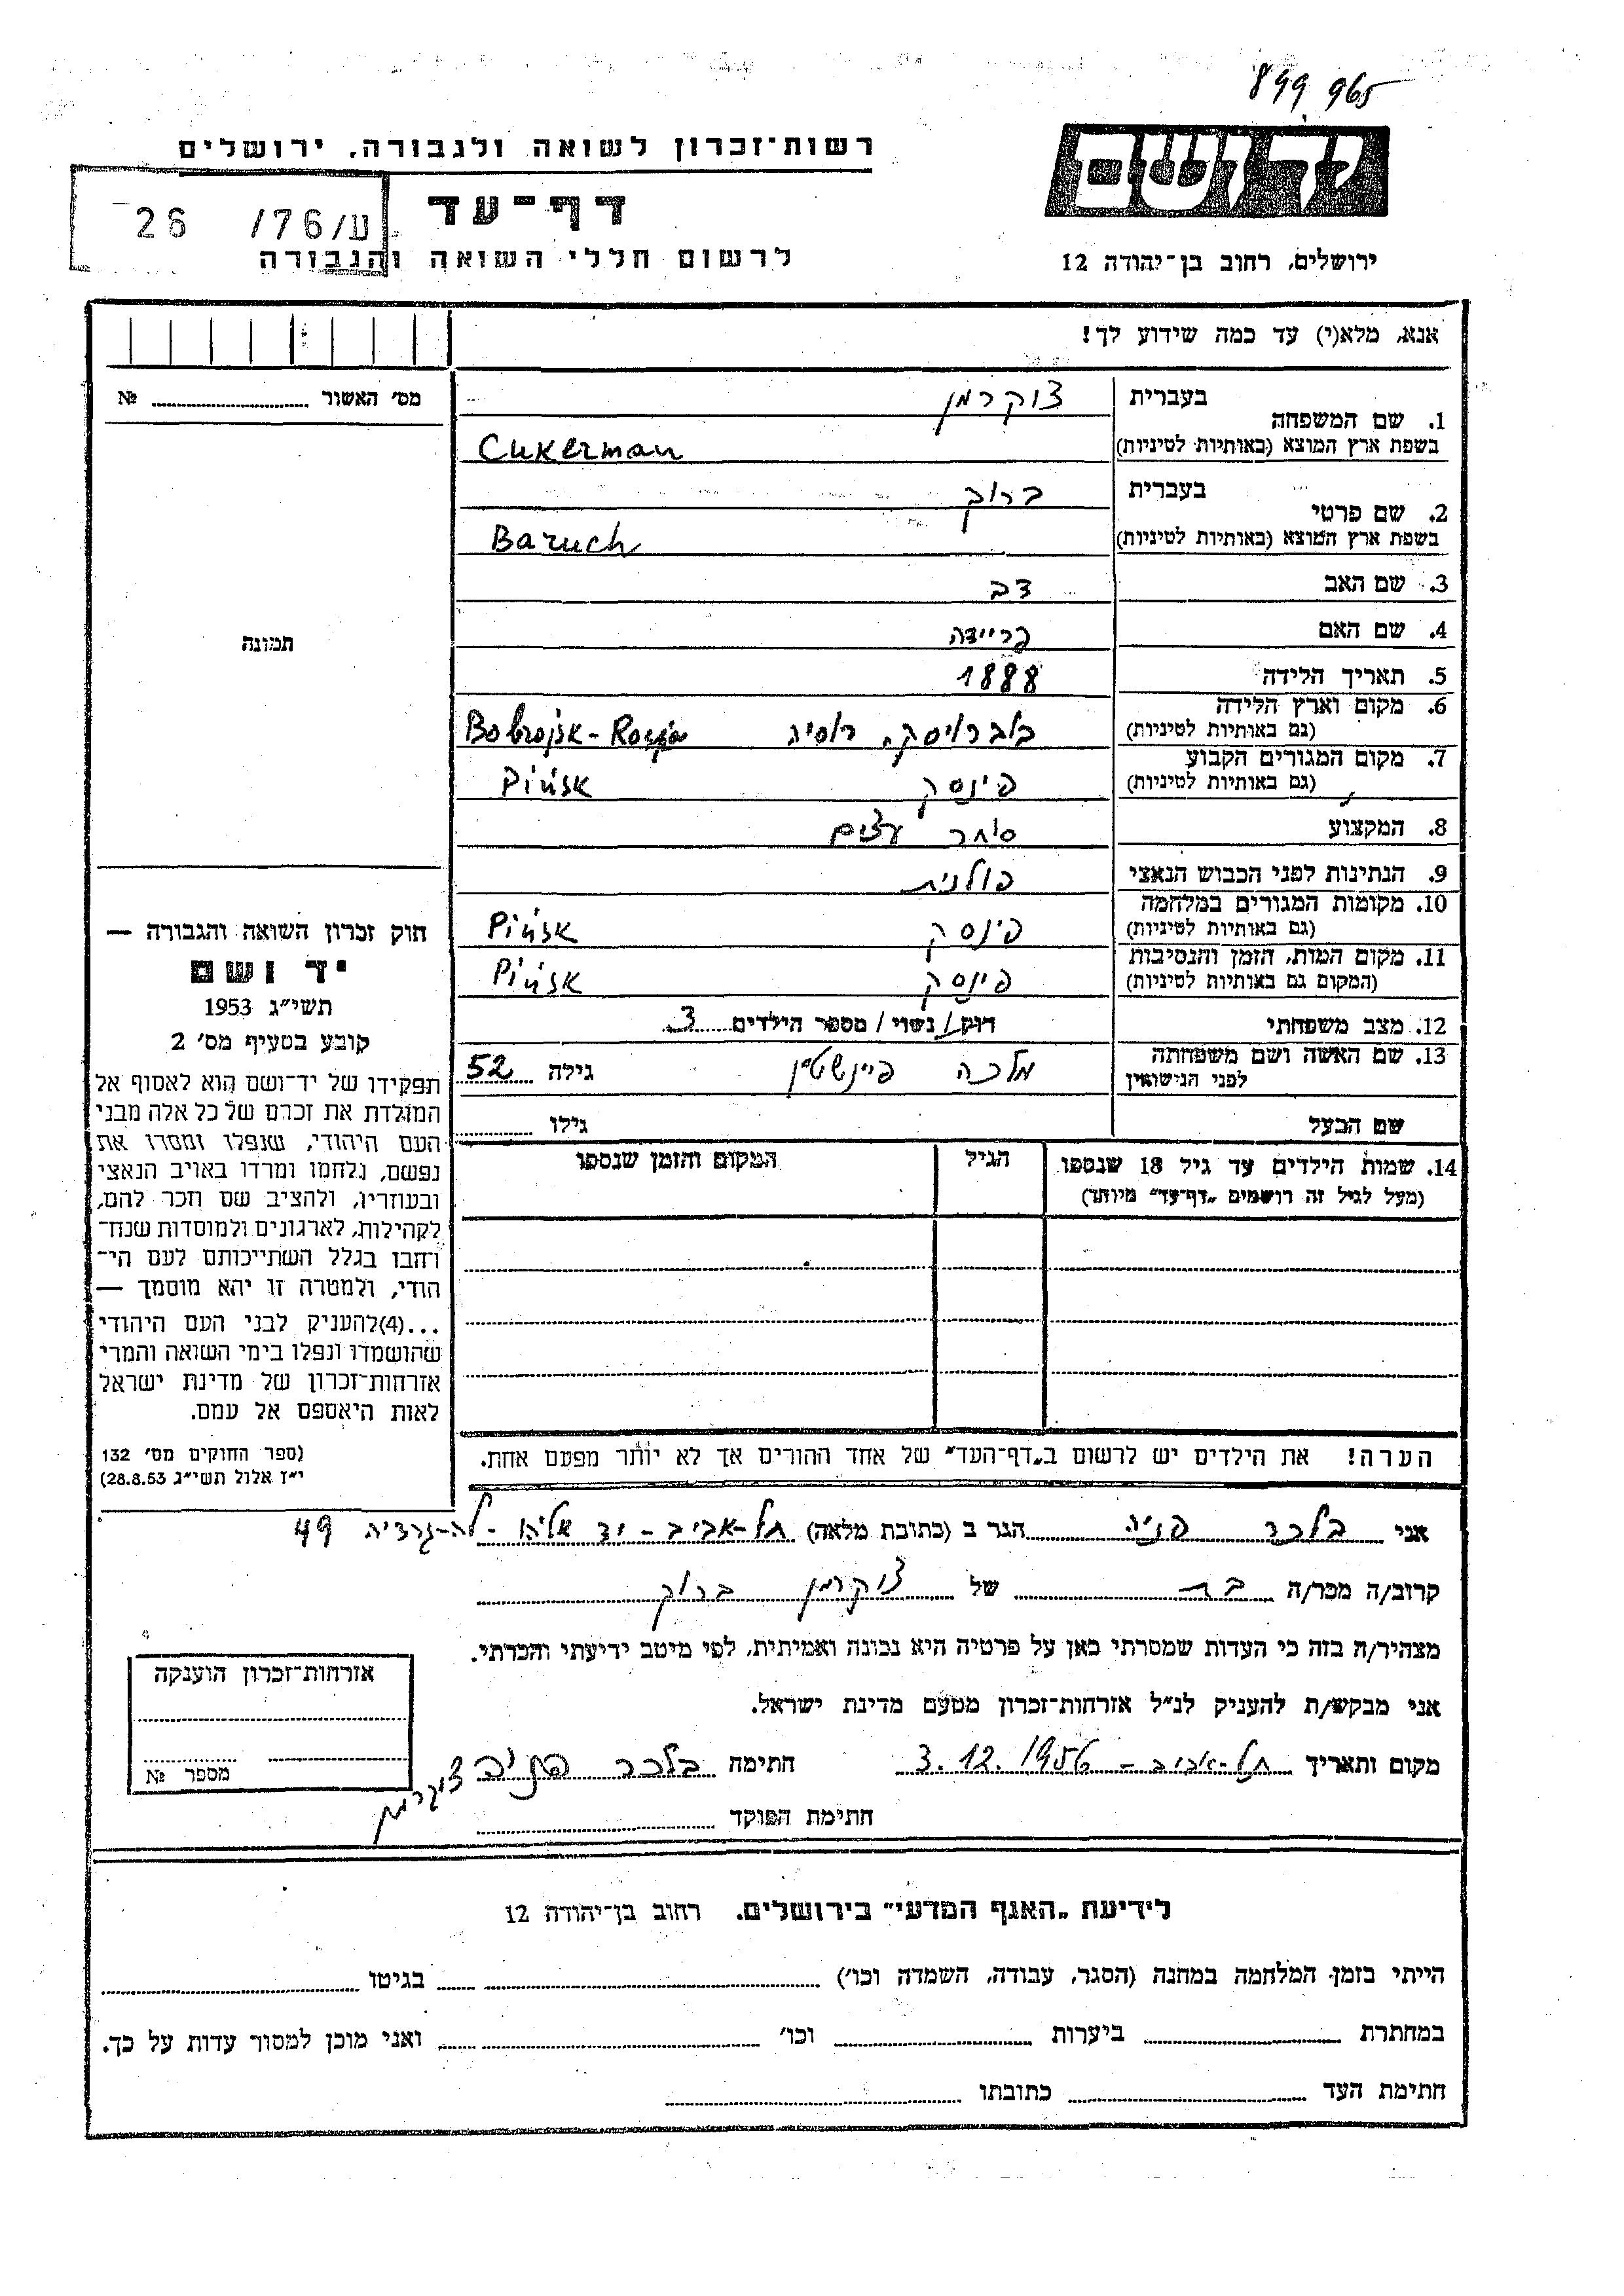 899 965
יד ושם
רשות־זכרון לשואה ולגבורה, ירושלים
דף־עד
ע/76/ 26
לרשום חללי השואה והגבורה
ירושלים, רחוב בן־יהודה 12
אנא, מלא(י) עד כמה שידוע לך!
מס׳ האשור № ........
1. שם המשפחה בעברית צוקרמן
בשפת ארץ המוצא (באותיות לטיניות) Cukerman
2. שם פרטי בעברית ברוך
בשפת ארץ המוצא (באותיות לטיניות) Baruch
3. שם האב דב
4. שם האם פריידה
5. תאריך הלידה 1888
6. מקום וארץ הלידה
(גם באותיות לטיניות) בוברויסק, רוסיה Bobrojsk - Rosja
7. מקום המגורים הקבוע
(גם באותיות לטיניות) פינסק Pińsk
8. המקצוע סוחר עצים
9. הנתינות לפני הכבוש הנאצי פולנית
10. מקומות המגורים במלחמה
(גם באותיות לטיניות) פינסק Pińsk
11. מקום המות, הזמן והנסיבות
(המקום גם באותיות לטיניות) פינסק Pińsk
12. מצב משפחתי רווק/ נשוי/ מספר הילדים 3
13. שם האשה ושם משפחתה
לפני הנישואין מלכה פיינשטיין גילה 52
שם הבעל גילו ........
14. שמות הילדים עד גיל 18 שנספו
(מעל לגיל זה רושמים „דף־עד״ מיוחד)
הגיל
המקום והזמן שנספו
הערה! את הילדים יש לרשום ב„דף־העד״ של אחד ההורים אך לא יותר מפעם אחת.
תמונה
חוק זכרון השואה והגבורה —
יד ושם
תשי״ג 1953
קובע בסעיף מס׳ 2
תפקידו של יד־ושם הוא לאסוף אל
המולדת את זכרם של כל אלה מבני
העם היהודי, שנפלו ומסרו את
נפשם, נלחמו ומרדו באויב הנאצי
ובעוזריו, ולהציב שם וזכר להם,
לקהילות, לארגונים ולמוסדות שנח־
רחבו בגלל השתייכותם לעם הי־
הודי, ולמטרה זו יהא מוסמך —
...(4)להעניק לבני העם היהודי
שהושמדו ונפלו בימי השואה והמרי
אזרחות־זכרון של מדינת ישראל
לאות היאספם אל עמם.
(ספר החוקים מס׳ 132
י״ז אלול תשי״ג 28.8.53)
אני בלכר פניה הגר ב (כתובת מלאה) תל-אביב - יד אליהו - לה-גרדיה 49
קרוב/ה מכר/ה בת של צוקרמן ברוך
מצהיר/ה בזה כי העדות שמסרתי כאן על פרטיה היא נכונה ואמיתית, לפי מיטב ידיעתי והכרתי.
אני מבקש/ת להעניק לנ״ל אזרחות־זכרון מטעם מדינת ישראל.
מקום ותאריך תל-אביב - 3.12.1956 חתימה בלכר פניה צוקרמן
חתימת הפוקד ........
אזרחות־זכרון הוענקה
מספר №
לידיעת „האגף המדעי״ בירושלים, רחוב בן־יהודה 12
הייתי בזמן המלחמה במחנה (הסגר, עבודה, השמדה וכו׳) ........ בגיטו ........
במחתרת ........ ביערות ........ וכו׳ ........ ואני מוכן למסור עדות על כך.
חתימת העד ........ כתובתו ........